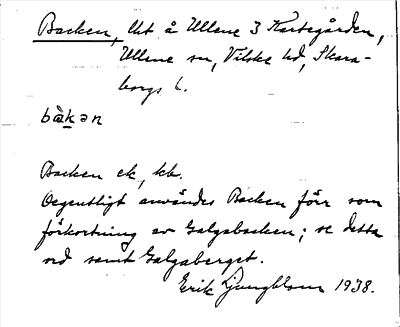 Backen, Ut å Ullene 3 Kartegården,
Ullene sn, Vilske hd, Skara-
borgs l.
bàkən
Backen ek, kb.
Oegentligt användes Backen förr som
förkortning av Galgabacken; se detta
ord samt Galgaberget.
Erik Ljungblom 1938.